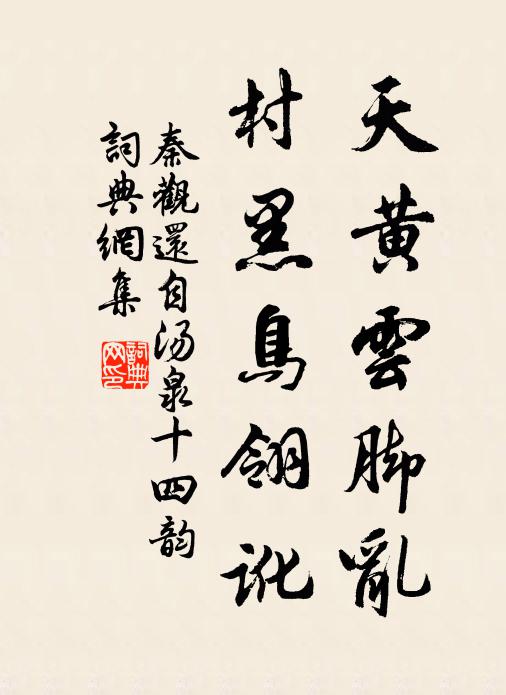 天黄雲脚亂
村黑鳥翎訛
秦觀還自湯泉十四韵
詞典網集
詞典網印